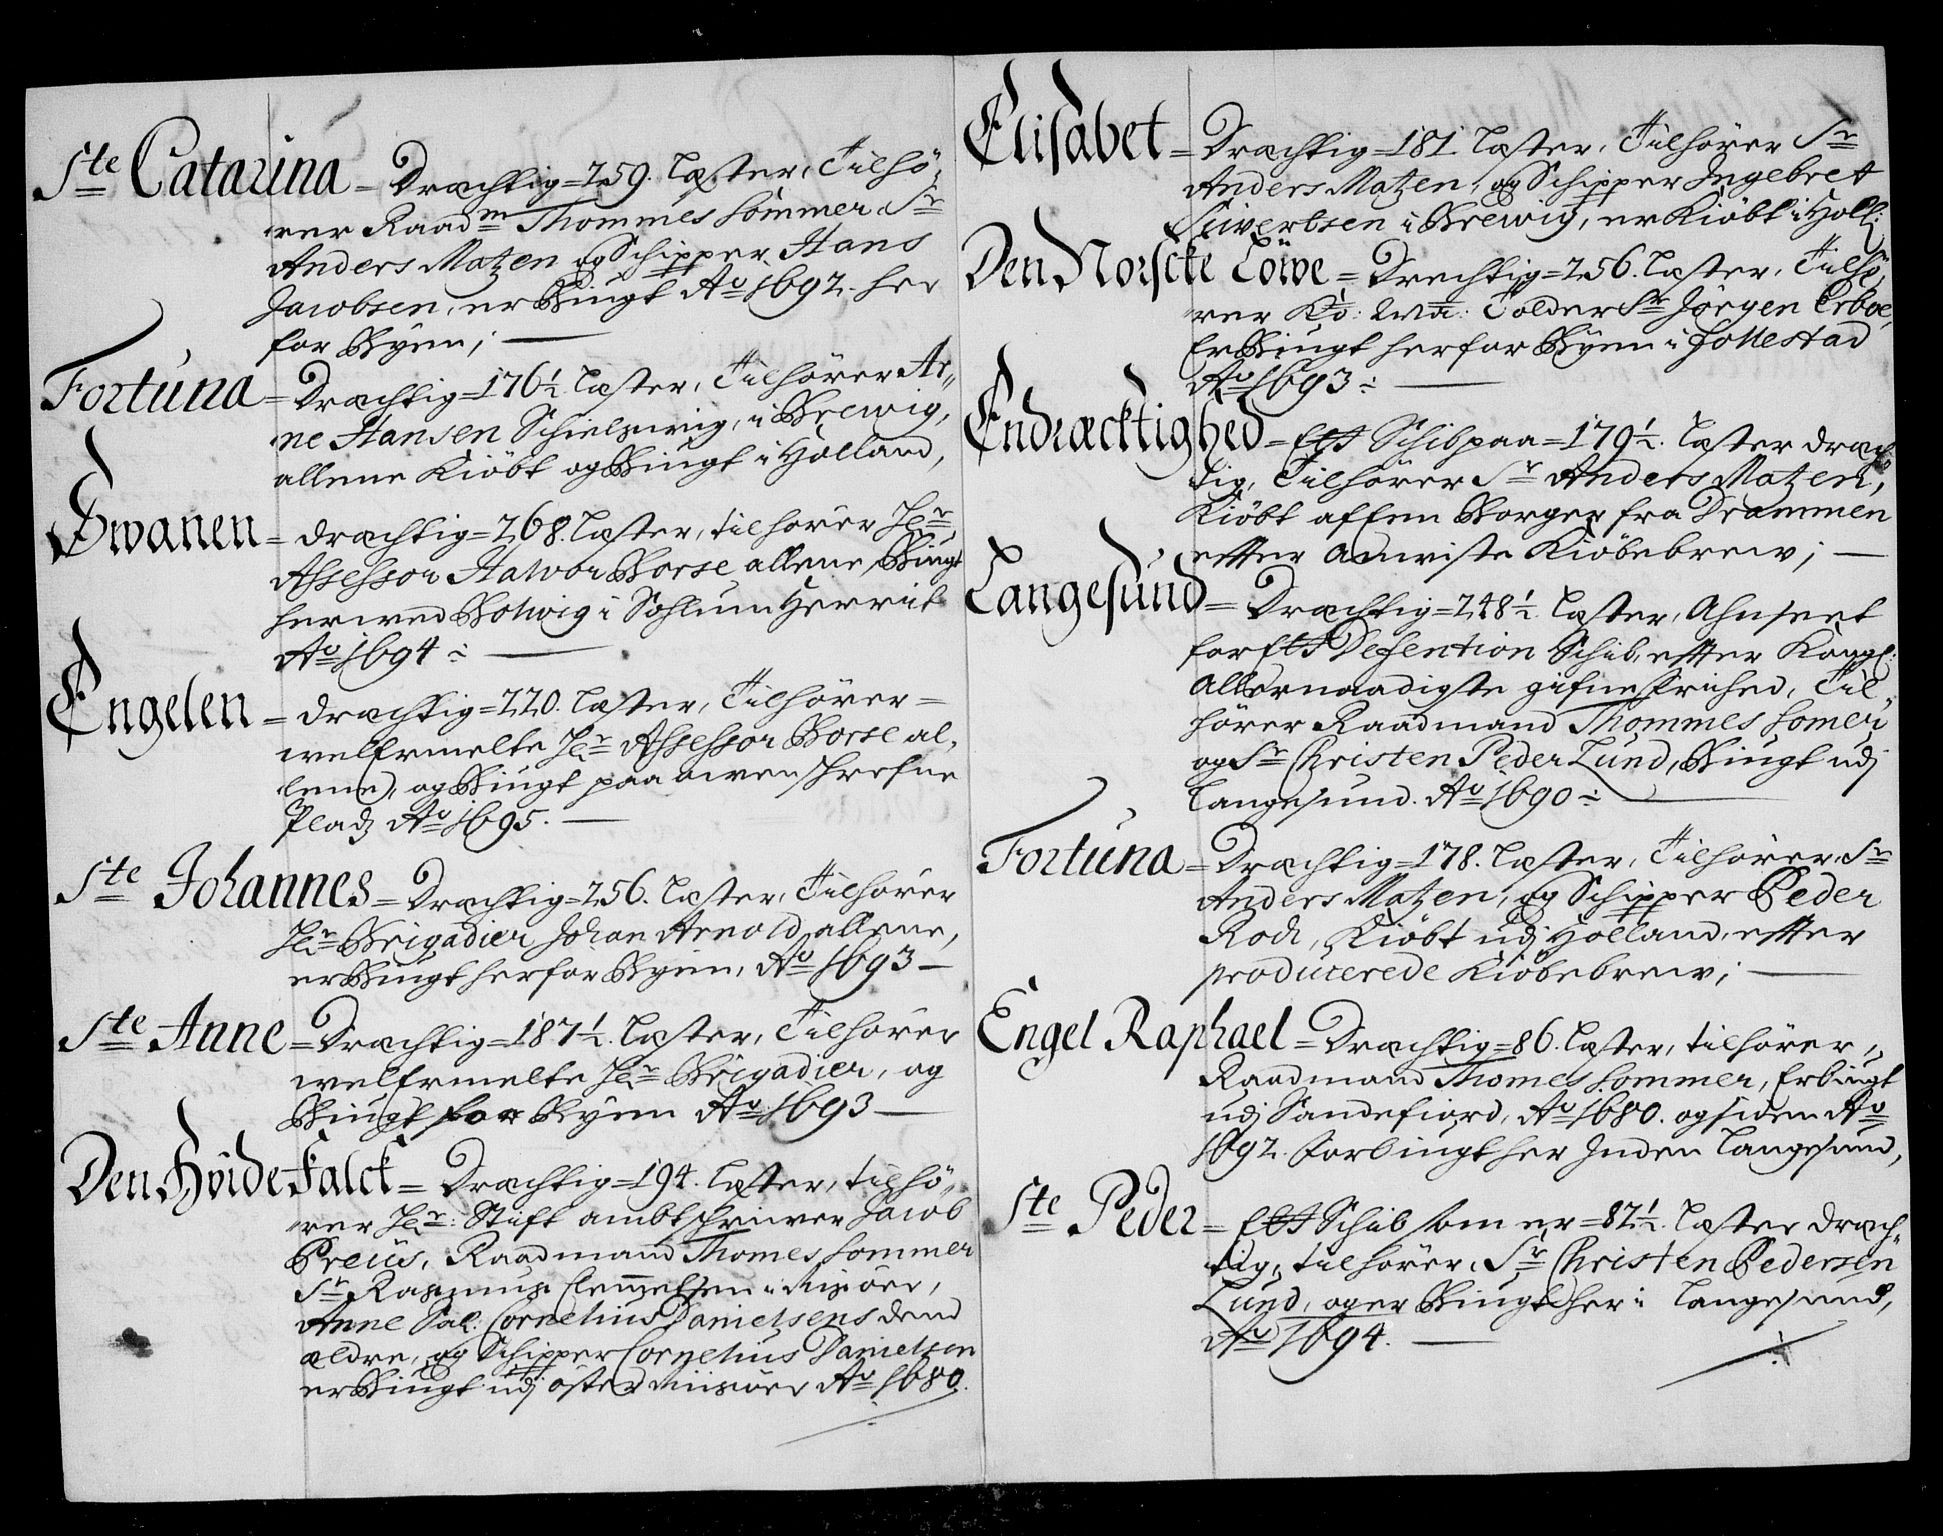 Ste Catarina = Drachtig = 259. Læster, Tilhö-
rer Raadm Thommes Sommer Sr
Anders Matzen og Schipper Hans
Jacobsen, er Bÿugt Ao 1692. her
for Bÿen; —
Fortuna = Drachtig = 176½ Læster, Tilhörer Ar-
ne Hansen Schielswig, i Brewig,
allene Kiöbt og Bÿugt i Holland,
Swanen = drachtig = 268. Læster, tilhörer Hr
Assessor Halvor Borse allene, Bÿugt
herwed Bolwig i Sohlum Herrit
Ao 1694 ÷ —
Engelen = drachtig = 220. Læster, Tilhörer =
welermelte Hr Assessor Borse al-
lene, og Bÿugt paa owenschrefne
Pladz Ao 1695. —
Ste Johannes = Drachtig = 256. Læster, Tilhörer
Hr Brigadier Johan Arnold allene,
er Bÿugt her for Bÿen, Ao 1693 —
Ste Anne = Drachtig = 187½. Læster, Tilhörer
welermelte Hr Brigadier, og
Bÿugt for Bÿen Ao 1693 —
Den Hvide Falck = Drachtig = 194. Læster, tilhö-
rer Hr: Stift ambtschriwer Jacob
Preüs, Raadmand Thomes Sommer
Sr Rasmus Clemmetsen i Riisöer,
Anne Sal: Cornelius Danielsens dend
ældre, og Schipper Cornelius Danielsen
er Bÿugt udj öster Riisöer Ao 1680.
Elisabet = Drachtig = 181. Læster, Tilhörer Sr
Anders Matzen, og Schipper Ingebret
Siwertsen i Brewig, er Kiöbt i Holl:
Den Norscke Löwe = Drechtig = 256. Læster, Tilhö-
rer Ko: Ma: Tolder Sr Jörgen Erboe,
Er Bÿugt her for Bÿen i Follestad
Ao 1693 ÷ —
Endræcktighed = Ett Schib paa = 179½. Læster drach-
tig, Tilhörer Sr Anders Matzen,
Kiöbt aff en Borger fra Drammen
effter anwiste Kiöbebrew; —
Langesund = Drachtig = 248½ Læster, Ahnseet
for ett Defention Schib, effter Kongl:
Allernaadigste gifne Frihed, Til-
hörer Raadmand Thommes Somer
og Sr Christen Peder Lund, Bÿugt udj
Langesund. Ao 1690 ÷ —
Fortuna = Drachtig = 178. Læster, Tilhörer, Sr
Anders Matzen, og Schipper Peder
Rod, Kiöbt udj Holland, effter
producerede Kiöbebrew; —
Engel Raphael = Drachtig = 86. Læster, tilhörer,
Raadmand Thomes Sommer, Er bÿugt
udj Sandefiord, Ao 1680. og siden Ao
1692. Forbÿugt her Inden Langesund,
Ste Peder = Ett Schib som er = 82½. Læster drach-
tig, tilhörer, Sr Christen Pedersen
Lund, og er Bÿugt her i Langesund,
Ao 1694. —